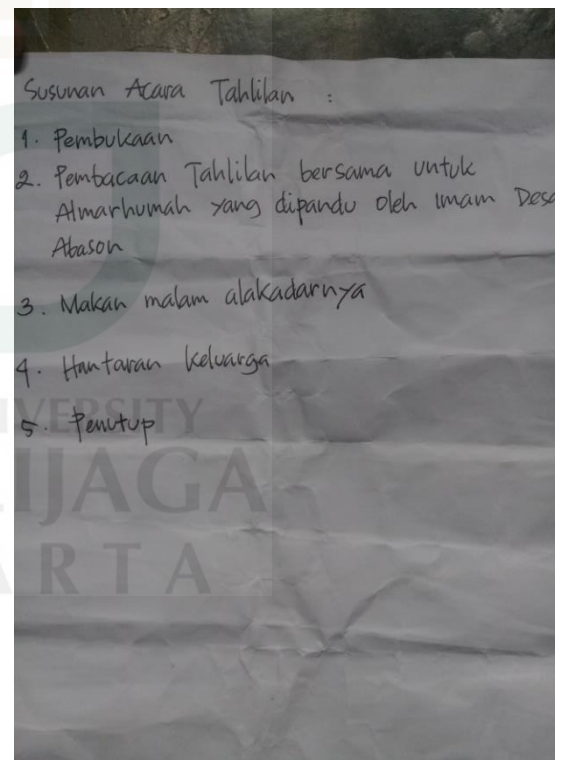 Susunan Acara Tahlilan :
1. Pembukaan
2. Pembacaan Tahlilan bersama untuk
Almarhumah yang dipandu oleh imam Desa
Abason
3. Makan malam alakadarnya
4. Hantaran keluarga
5. Penutup
IVERSITY
IJAGA
ARTA